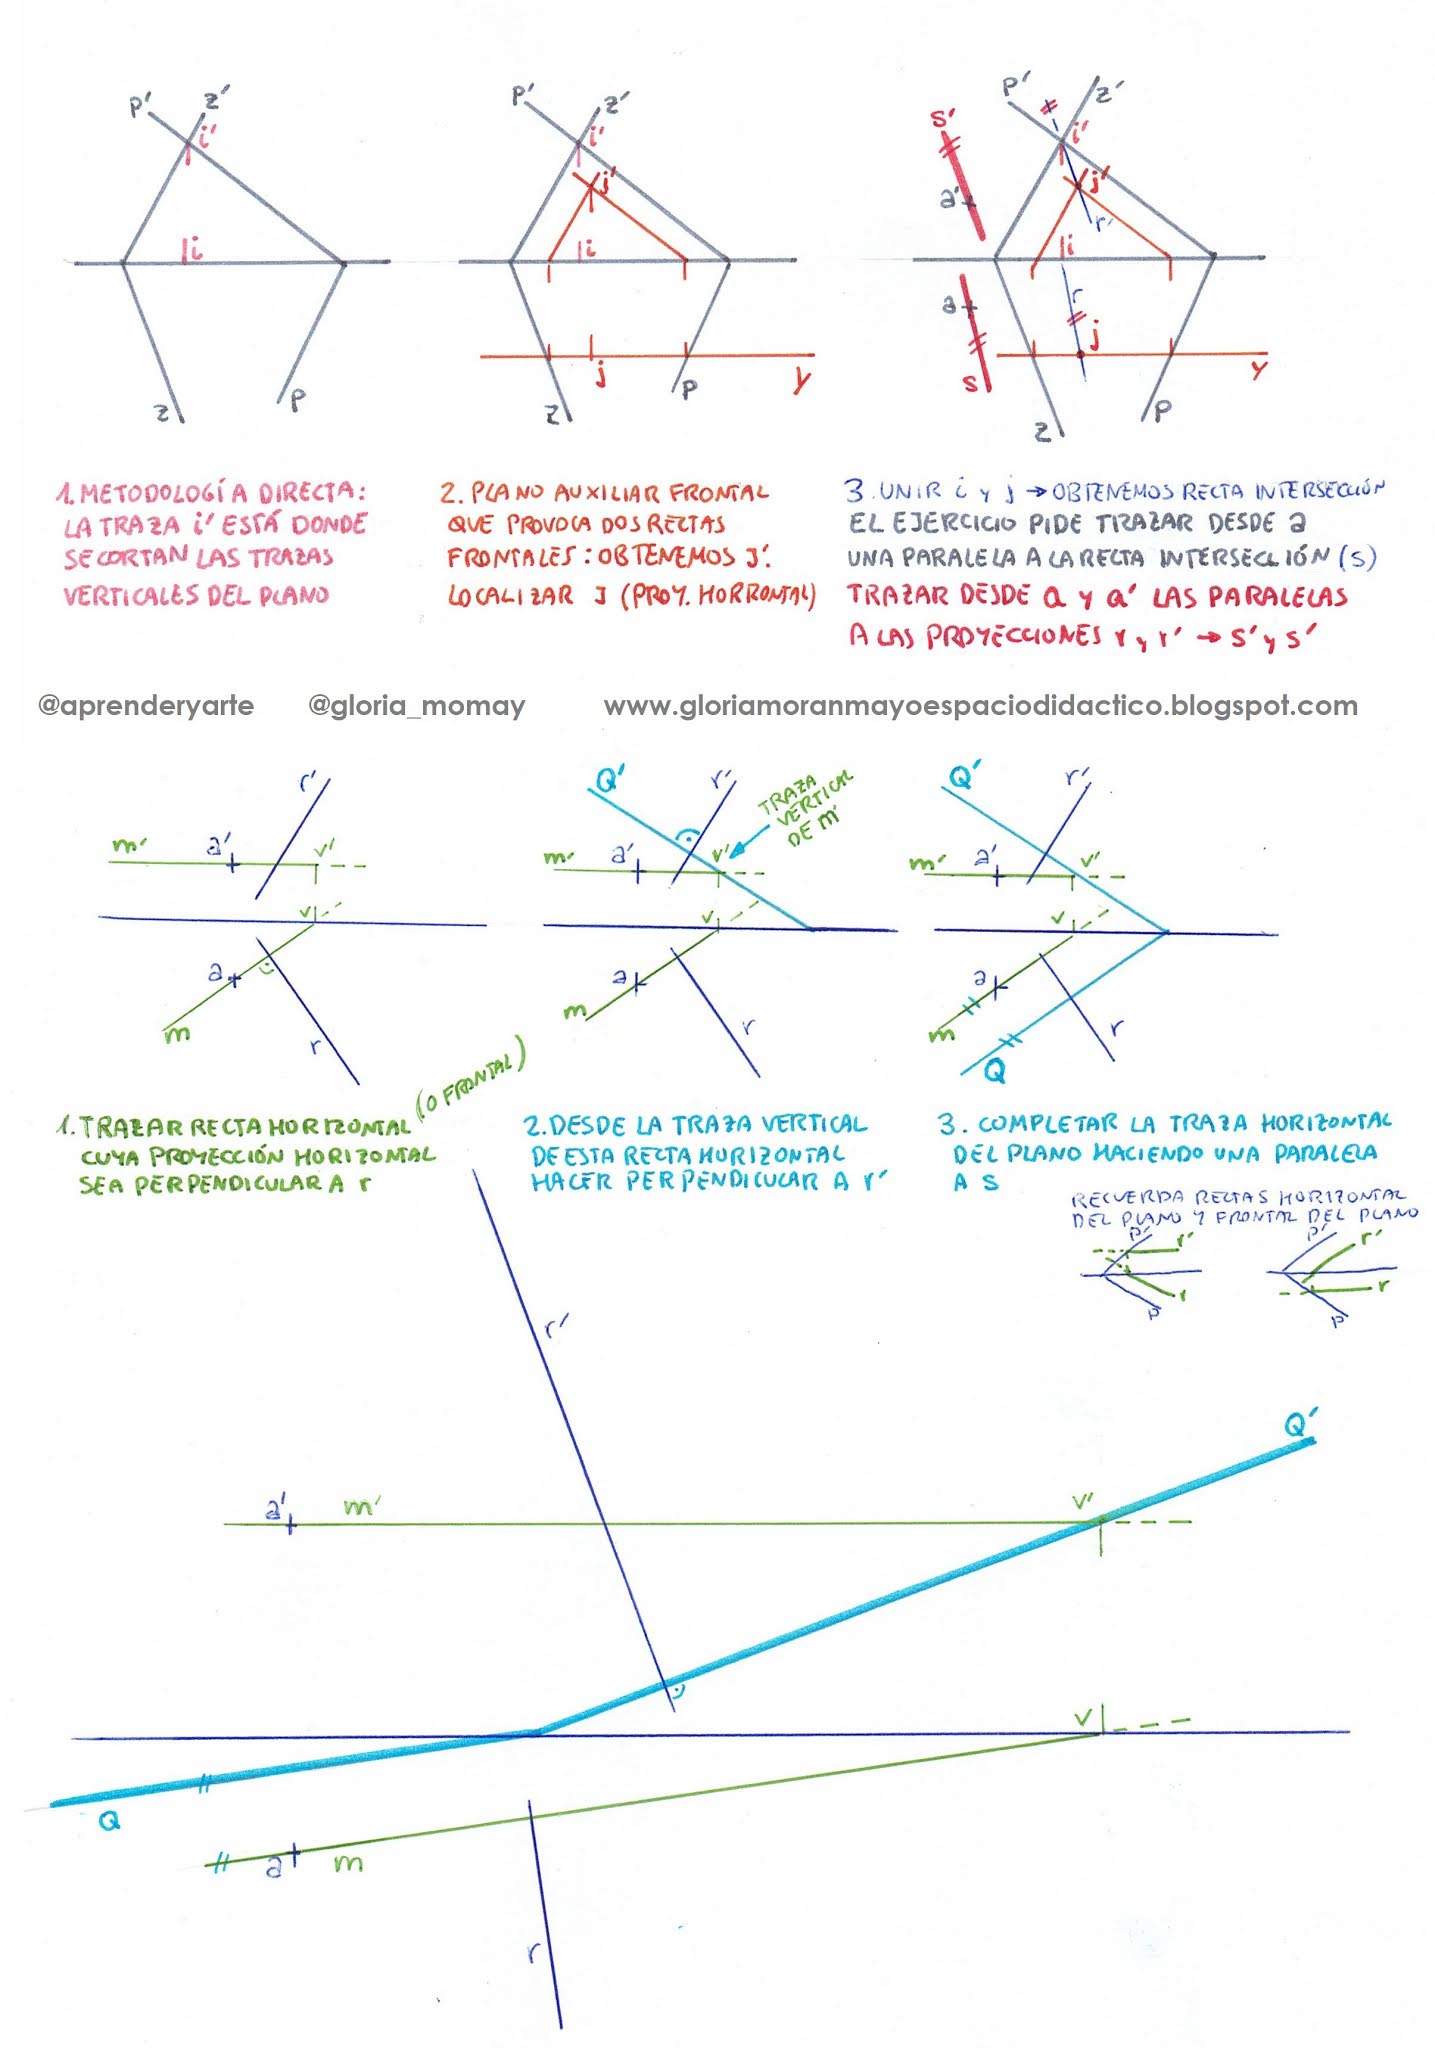 P' z' i'
i
z P
P' z' i'
j'
i
j
z P y
s' P' z' i'
a' j'
r'
i
a r
j
s y
z P
1. METODOLOGÍA DIRECTA:
LA TRAZA i' ESTÁ DONDE
SE CORTAN LAS TRAZAS
VERTICALES DEL PLANO
2. PLANO AUXILIAR FRONTAL
QUE PROVOCA DOS RECTAS
FRONTALES: OBTENEMOS J'.
LOCALIZAR J (PROY. HORRONTAL)
3. UNIR i y j → OBTENEMOS RECTA INTERSECCIÓN
EL EJERCICIO PIDE TRAZAR DESDE a
UNA PARALELA A LA RECTA INTERSECCIÓN (S)
TRAZAR DESDE a y a' LAS PARALELAS
A LAS PROYECCIONES r y r' → s' y s'
@aprenderyarte @gloria_momay www.gloriamoranmayoespaciodidactico.blogspot.com
r'
m' a' v'
v
a
m r
Q' r' TRAZA
VERTICAL
DE m'
m' a' v'
v
a
m r
Q' r'
m' a' v'
v
a
m r
Q
1. TRAZAR RECTA HORIZONTAL (O FRONTAL)
CUYA PROYECCIÓN HORIZONTAL
SEA PERPENDICULAR A r
2. DESDE LA TRAZA VERTICAL
DE ESTA RECTA HURIZONTAL
HACER PERPENDICULAR A r'
3. COMPLETAR LA TRAZA HORIZONTAL
DEL PLANO HACIENDO UNA PARALELA
A S
RECUERDA RECTAS HORIZONTAL
DEL PLANO Y FRONTAL DEL PLANO
P' r' P' r'
r r
P P
r'
Q'
a' m' v'
v
Q
a m
r